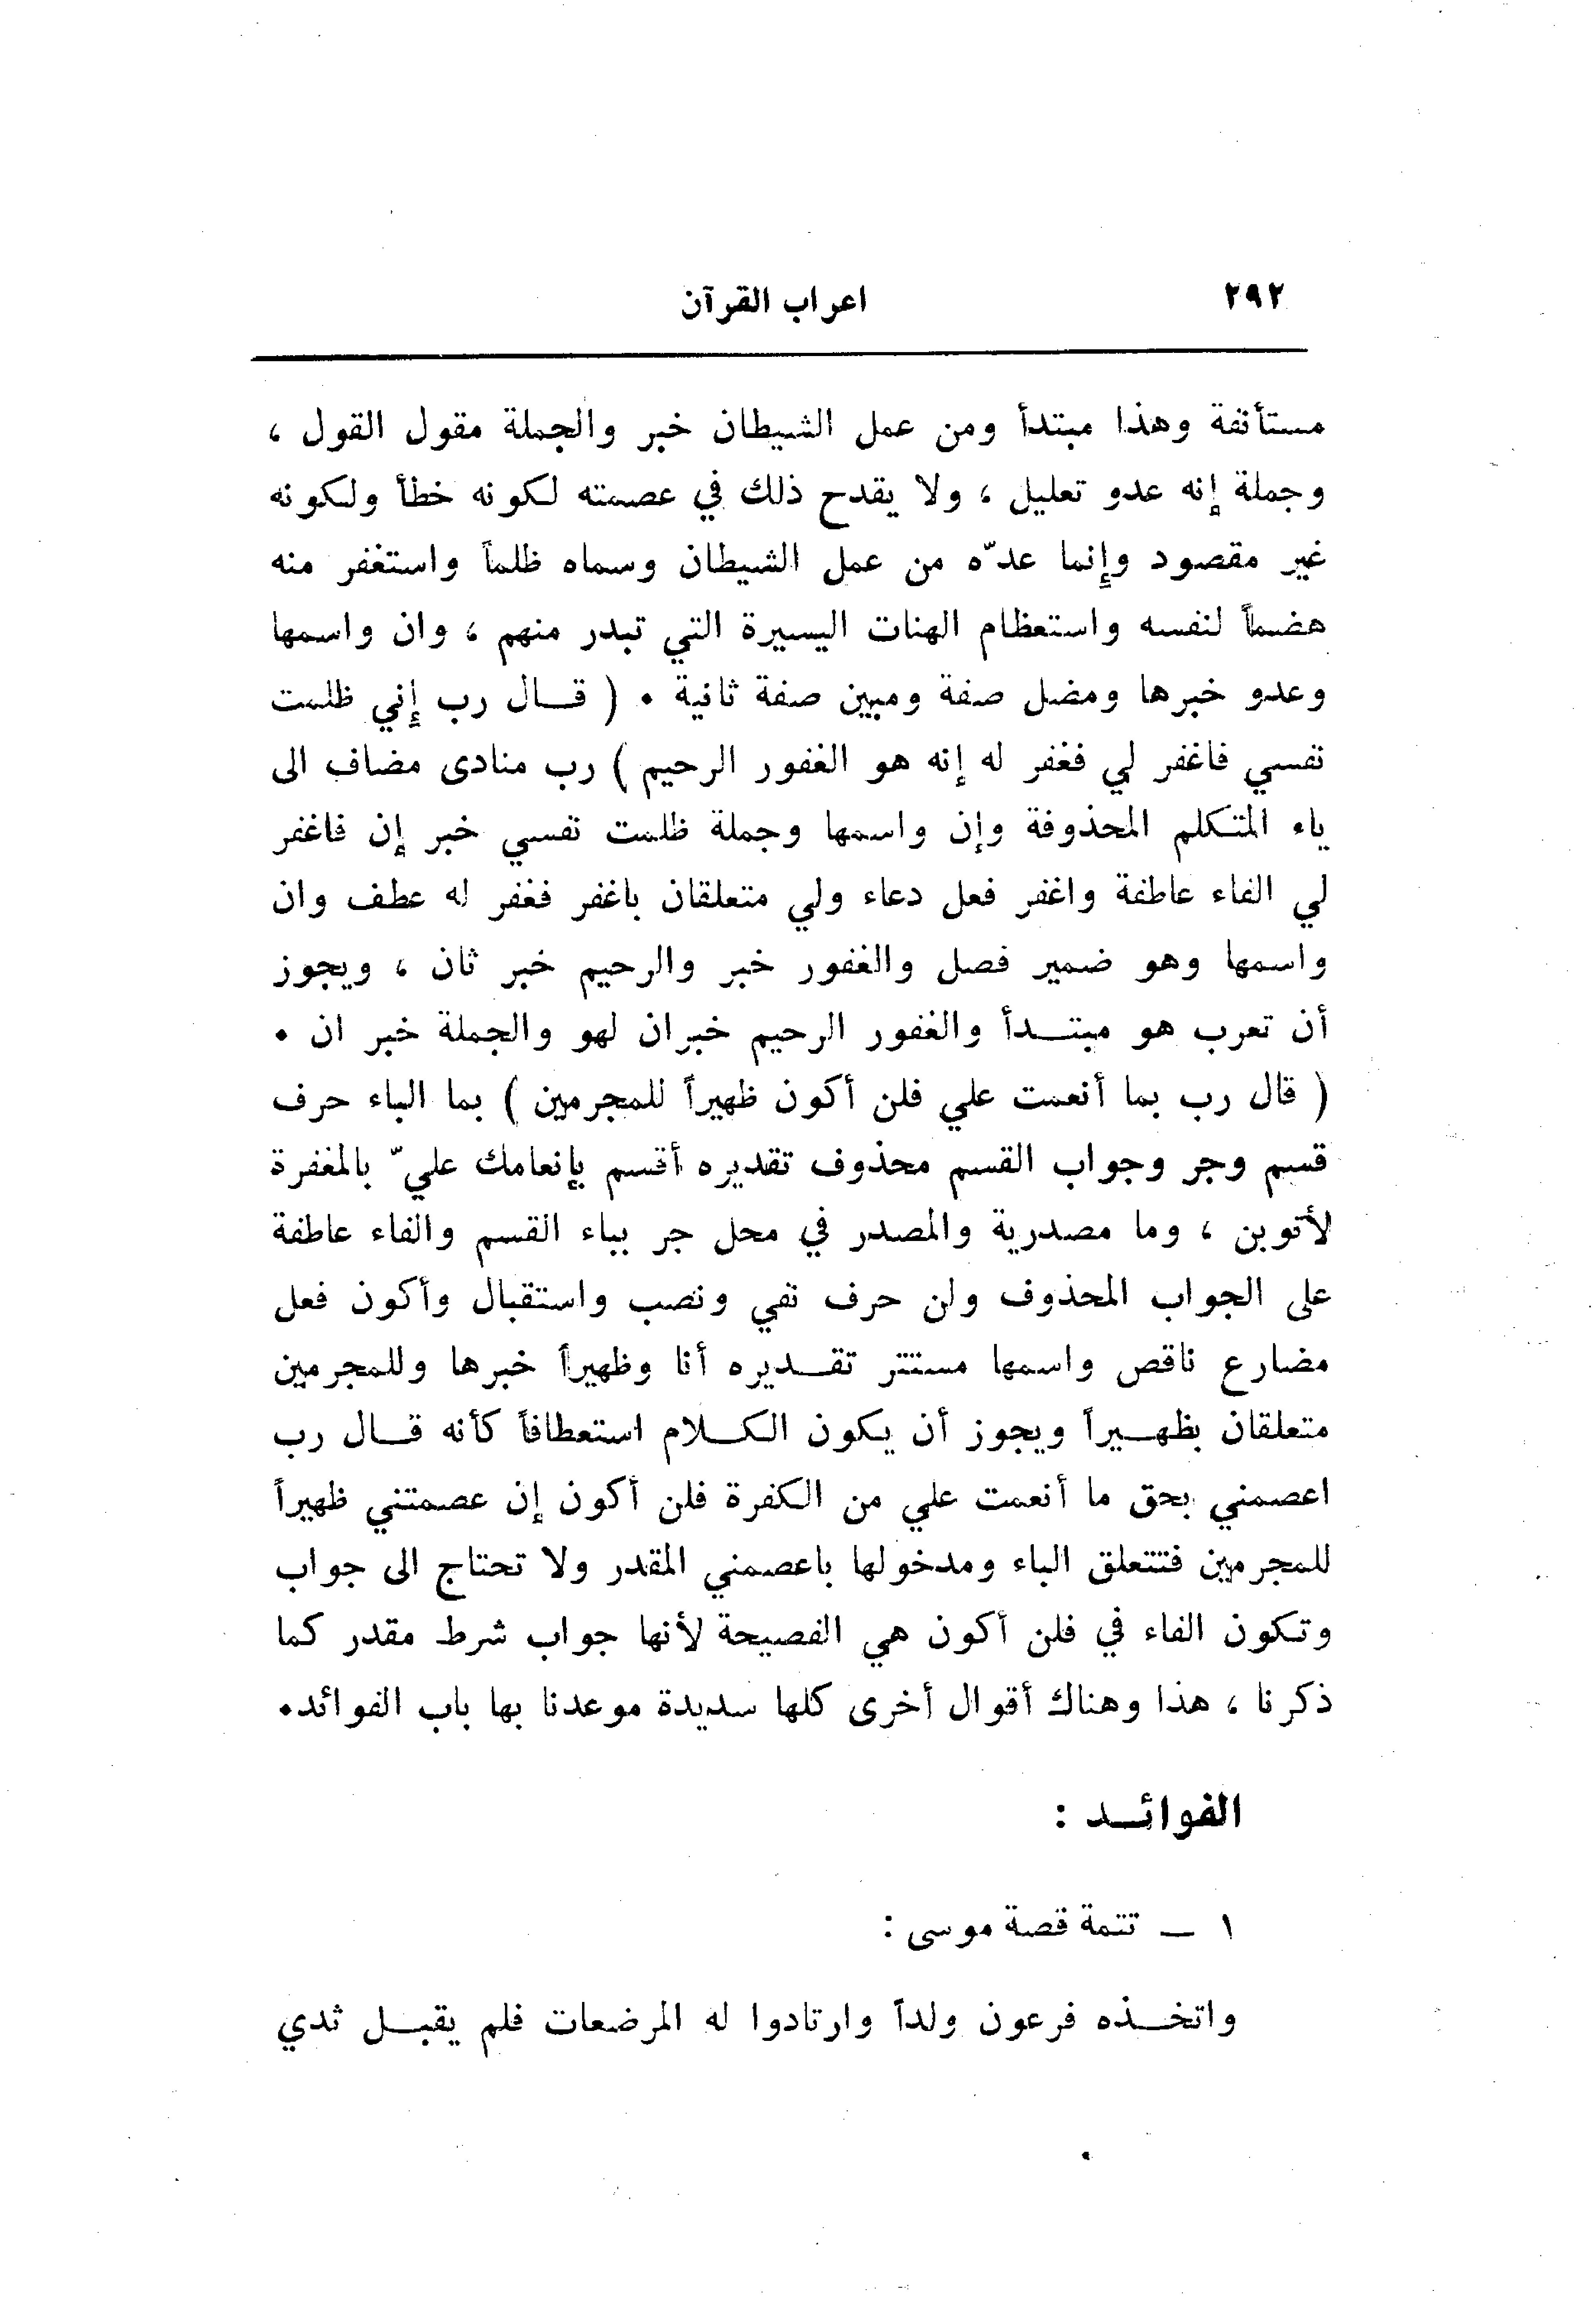 ٢٩٢
اعراب القرآن
مستأنفة وهذا مبتدأ ومن عمل الشيطان خبر والجملة مقول القول ،
وجملة إنه عدو تعليل ، ولا يقدح ذلك في عصمته لكونه خطأ ولكونه
غير مقصود وإنما عدّه من عمل الشيطان وسماه ظلماً واستغفر منه
هضماً لنفسه واستعظام الهنات اليسيرة التي تبدر منهم ، وان واسمها
وعدو خبرها ومضل صفة ومبين صفة ثانية . ( قال رب إني ظلمت
نفسي فاغفر لي فغفر له إنه هو الغفور الرحيم ) رب منادى مضاف الى
ياء المتكلم المحذوفة وإن واسمها وجملة ظلمت نفسي خبر إن فاغفر
لي الفاء عاطفة واغفر فعل دعاء ولي متعلقان باغفر فغفر له عطف وان
واسمها وهو ضمير فصل والغفور خبر والرحيم خبر ثان ، ويجوز
أن تعرب هو مبتدأ والغفور الرحيم خبران لهو والجملة خبر ان .
( قال رب بما أنعمت علي فلن أكون ظهيراً للمجرمين ) بما الباء حرف
قسم وجر وجواب القسم محذوف تقديره أقسم بإنعامك عليّ بالمغفرة
لأتوبن ، وما مصدرية والمصدر في محل جر بباء القسم والفاء عاطفة
على الجواب المحذوف ولن حرف نفي ونصب واستقبال وأكون فعل
مضارع ناقص واسمها مستتر تقديره أنا وظهيراً خبرها وللمجرمين
متعلقان بظهيراً ويجوز أن يكون الكلام استعطافاً كأنه قال رب
اعصمني بحق ما أنعمت علي من الكفرة فلن أكون إن عصمتني ظهيراً
للمجرمين فتتعلق الباء ومدخولها باعصمني المقدر ولا تحتاج الى جواب
وتكون الفاء في فلن أكون هي الفصيحة لأنها جواب شرط مقدر كما
ذكرنا ، هذا وهناك أقوال أخرى كلها سديدة موعدنا بها باب الفوائد.
الفوائد :
١ ـ تتمة قصة موسى :
واتخذه فرعون ولداً وارتادوا له المرضعات فلم يقبل ثدي